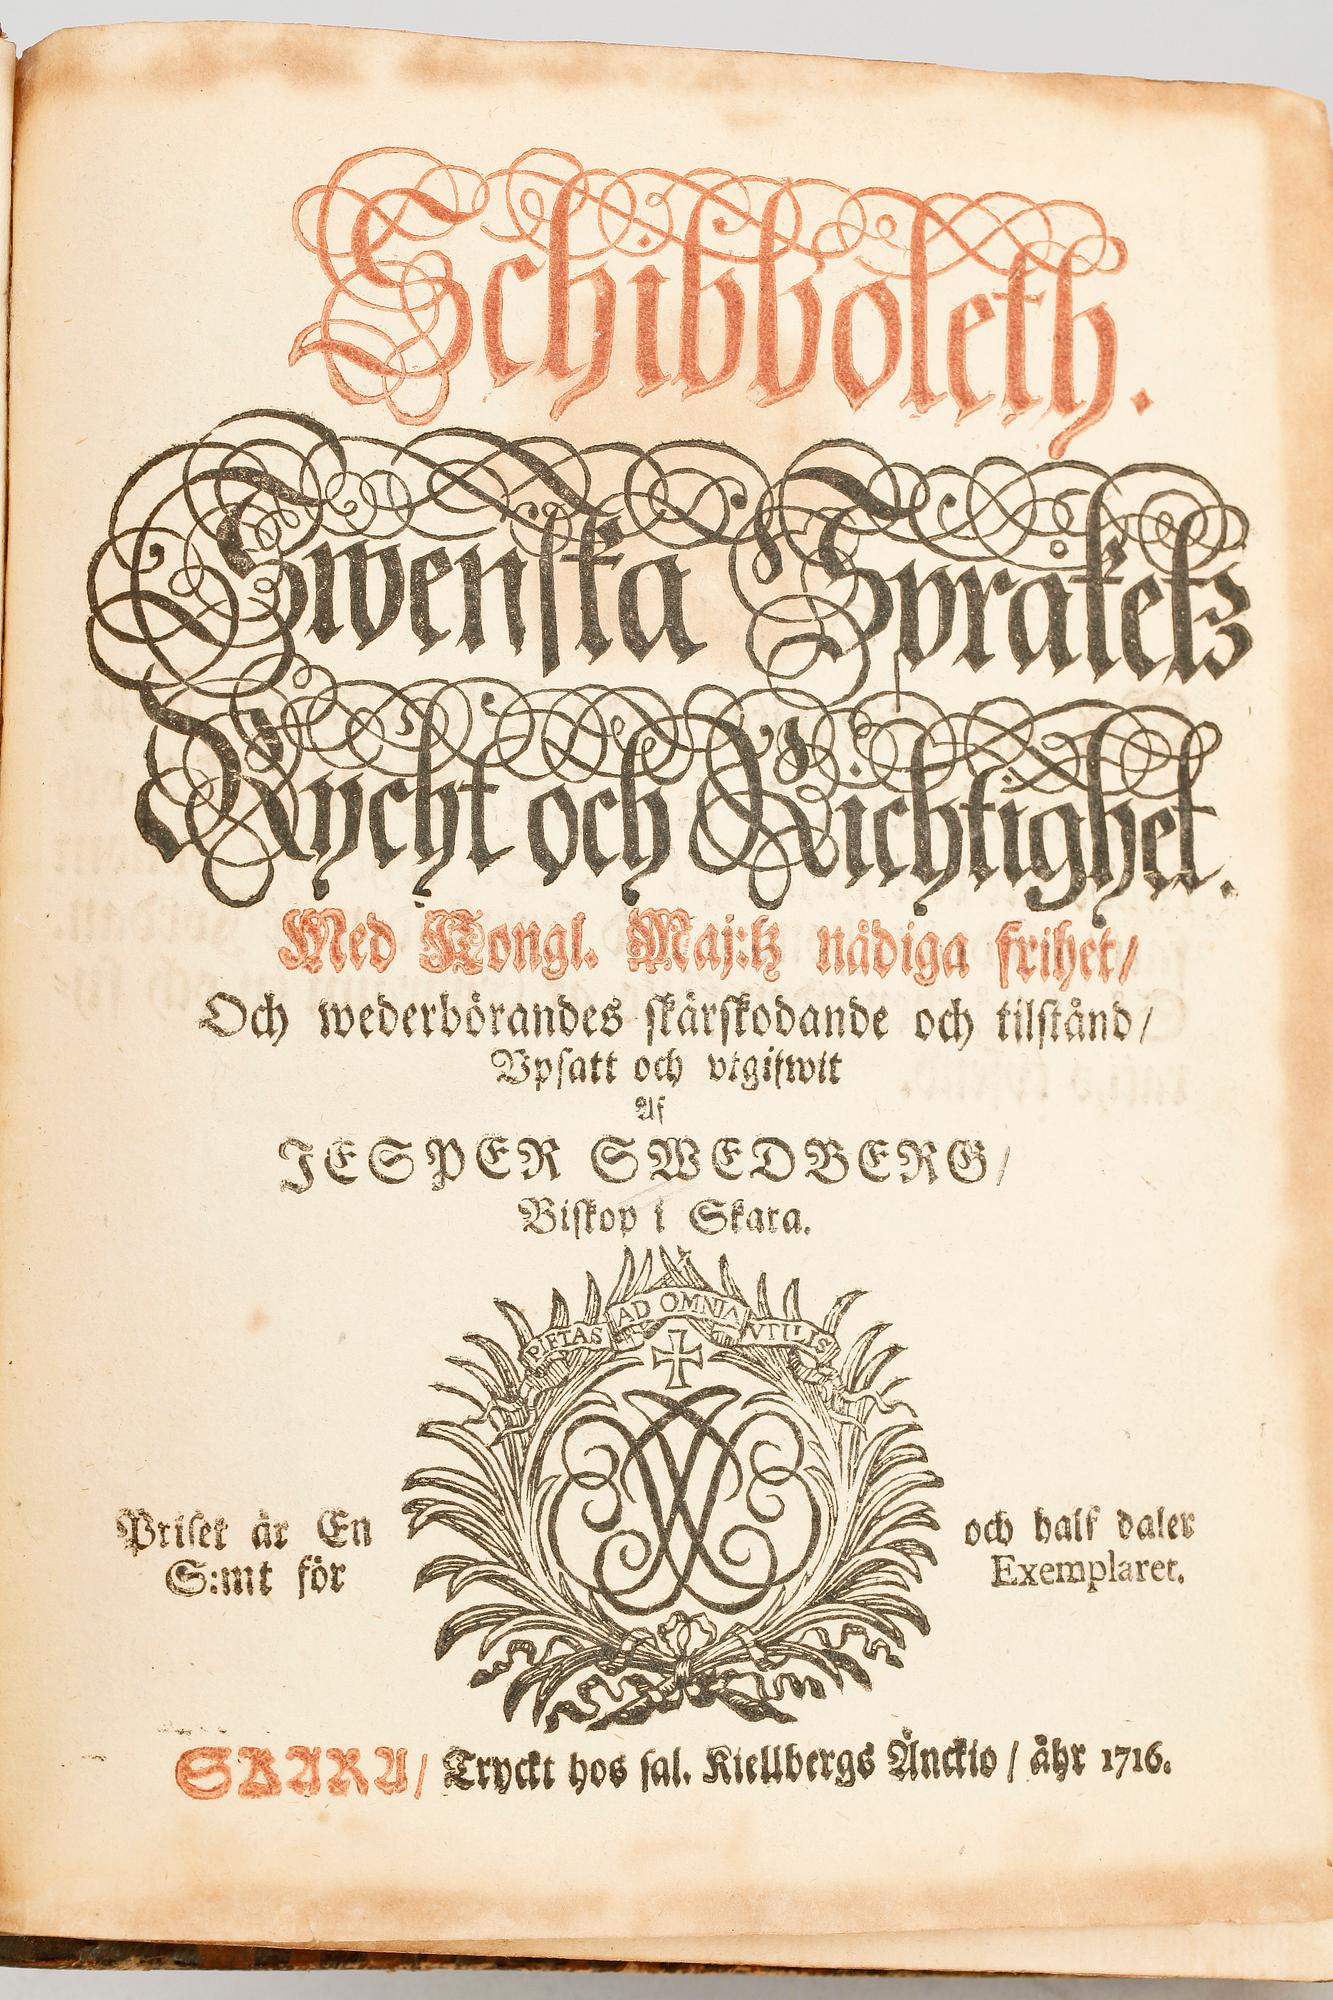 Schibboleth.
Swenska Språketz
Rycht och Richtighet.
Med Kongl. Maj:tz nådiga frihet/
Och wederbörandes skärskodande och tilstånd/
Vpsatt och vtgifwit
Af
JESPER SWEDBERG/
Biskop i Skara.
PIETAS AD OMNIA VTILIS
Priset är En och half daler
S:mt för Exemplaret.
SKARA/ Tryckt hos sal. Kiellbergs Änckio / åhr 1716.